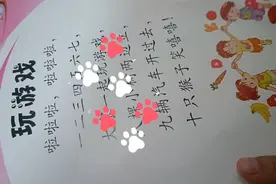 玩游戏
啦啦啦，啦啦啦，
一二三四六七，
一起玩游戏，
小两边上，
九辆汽车开过去，
十只猴子笑嘻嘻！